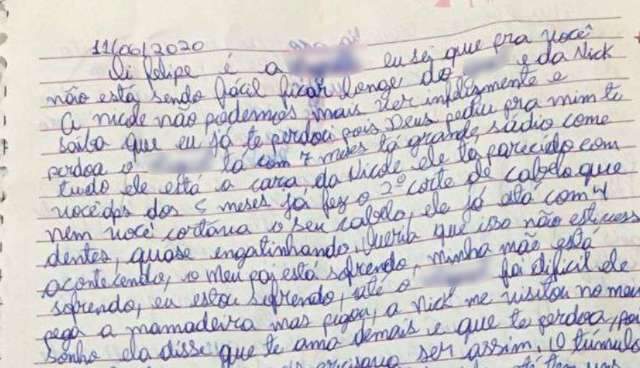 11/06/2020
Oi felipe é a eu sei que pra você
não está sendo fácil ficar longe do e da Nick
A nicole não podemos mais ver infelismente e
saiba que eu já te perdoei pois Deus pediu pra mim te
perdoa o ta com 7 meses ta grande sadio come
tudo ele está a cara da Nicole ele ta parecido com
você dos 5 meses já fez o 2º corte de cabelo que
nem você cortava o seu cabelo, ele já está com 4
dentes, quase engatinhando, Queria que isso não estivess
acontecendo, o meu pai está sofrendo, minha mãe está
sofrendo, eu estou sofrendo, até o foi dificil ele
pega a mamadeira mas pegou, a Nick me visitou no meu
sonho ela disse que te ama demais e que te perdoa, poi
ser assim, O túmulo